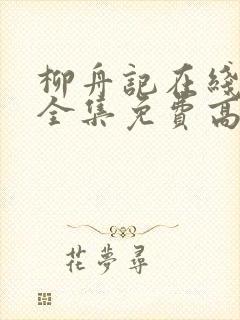 柳舟記在綫
全集免費高
花夢尋